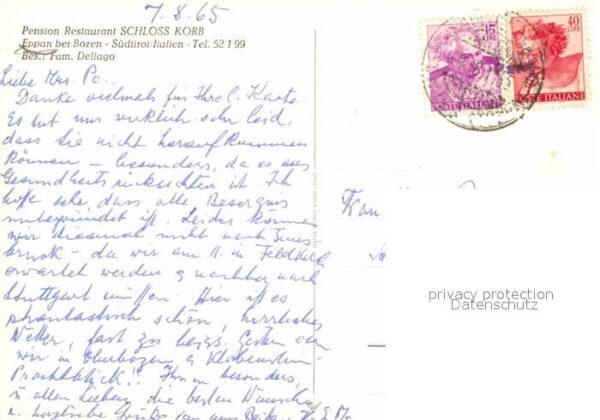 7.8.65
Pension Restaurant SCHLOSS KORB
Eppan bei Bozen - Südtirol/Italien - Tel. 52 1 99
Bes.: Fam. Dellago
Liebe Mrs. Po..
Danke vielmals für Ihre l. Karte.
Es tut uns wirklich sehr leid,
dass Sie nicht herauf kommen
können – besonders, da es aus
Gesundheitsrücksichten ist. Ich
hoffe sehr, dass alle Besorgnis
unbegründet ist. Leider können
wir diesmal nicht nach Inns
bruck – da wir am 11. in Feldkirch
erwartet werden & nachher nach
Stuttgart müssen. Hier ist es
phantastisch schön, herrliches
Wetter, fast zu heiss. Gestern waren
wir in Oberbozen & Klobenstein
Prachtblick!! Ihnen besonders,
u. allen Lieben die besten Wünsche
u. herzliche Grüße von
15
LIRE
POSTE ITALIANE
40
LIRE
POSTE ITALIANE
privacy protection
Datenschutz